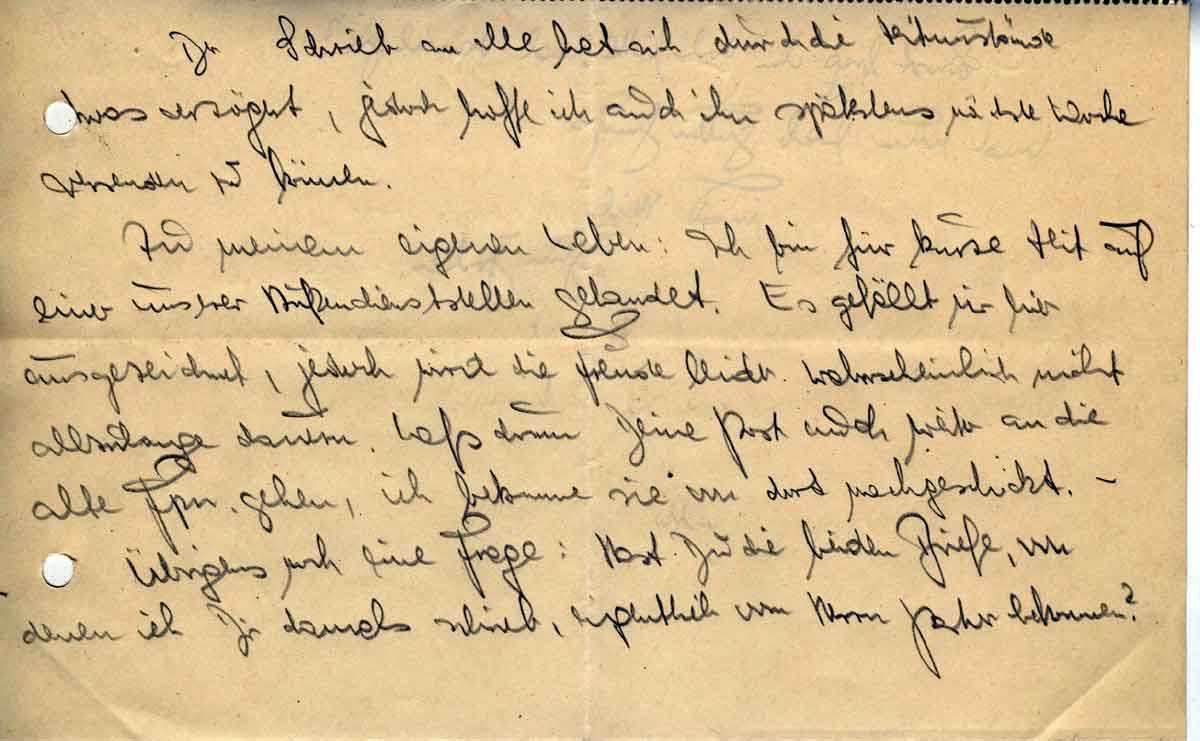 Der Schrieb an alle hat sich durch die Zeitumstände
etwas verzögert, jedoch hoffe ich auch ihn spätestens nächste Woche
versenden zu können.
Zu meinem eigenen Leben: Ich bin für kurze Zeit auf
einer unserer Außendienststellen gelandet. Es gefällt mir hier
ausgezeichnet, jedoch wird die Freude leider wahrscheinlich nicht
allzulange dauern. Laß drum Deine Post auch weiter an die
alte Fpn. gehen, ich bekomme sie von dort nachgeschickt. –
Übrigens noch eine Frage: Hast Du die beiden Briefe, von
denen ich Dir damals schrieb, eigentlich vom Herrn bekommen?